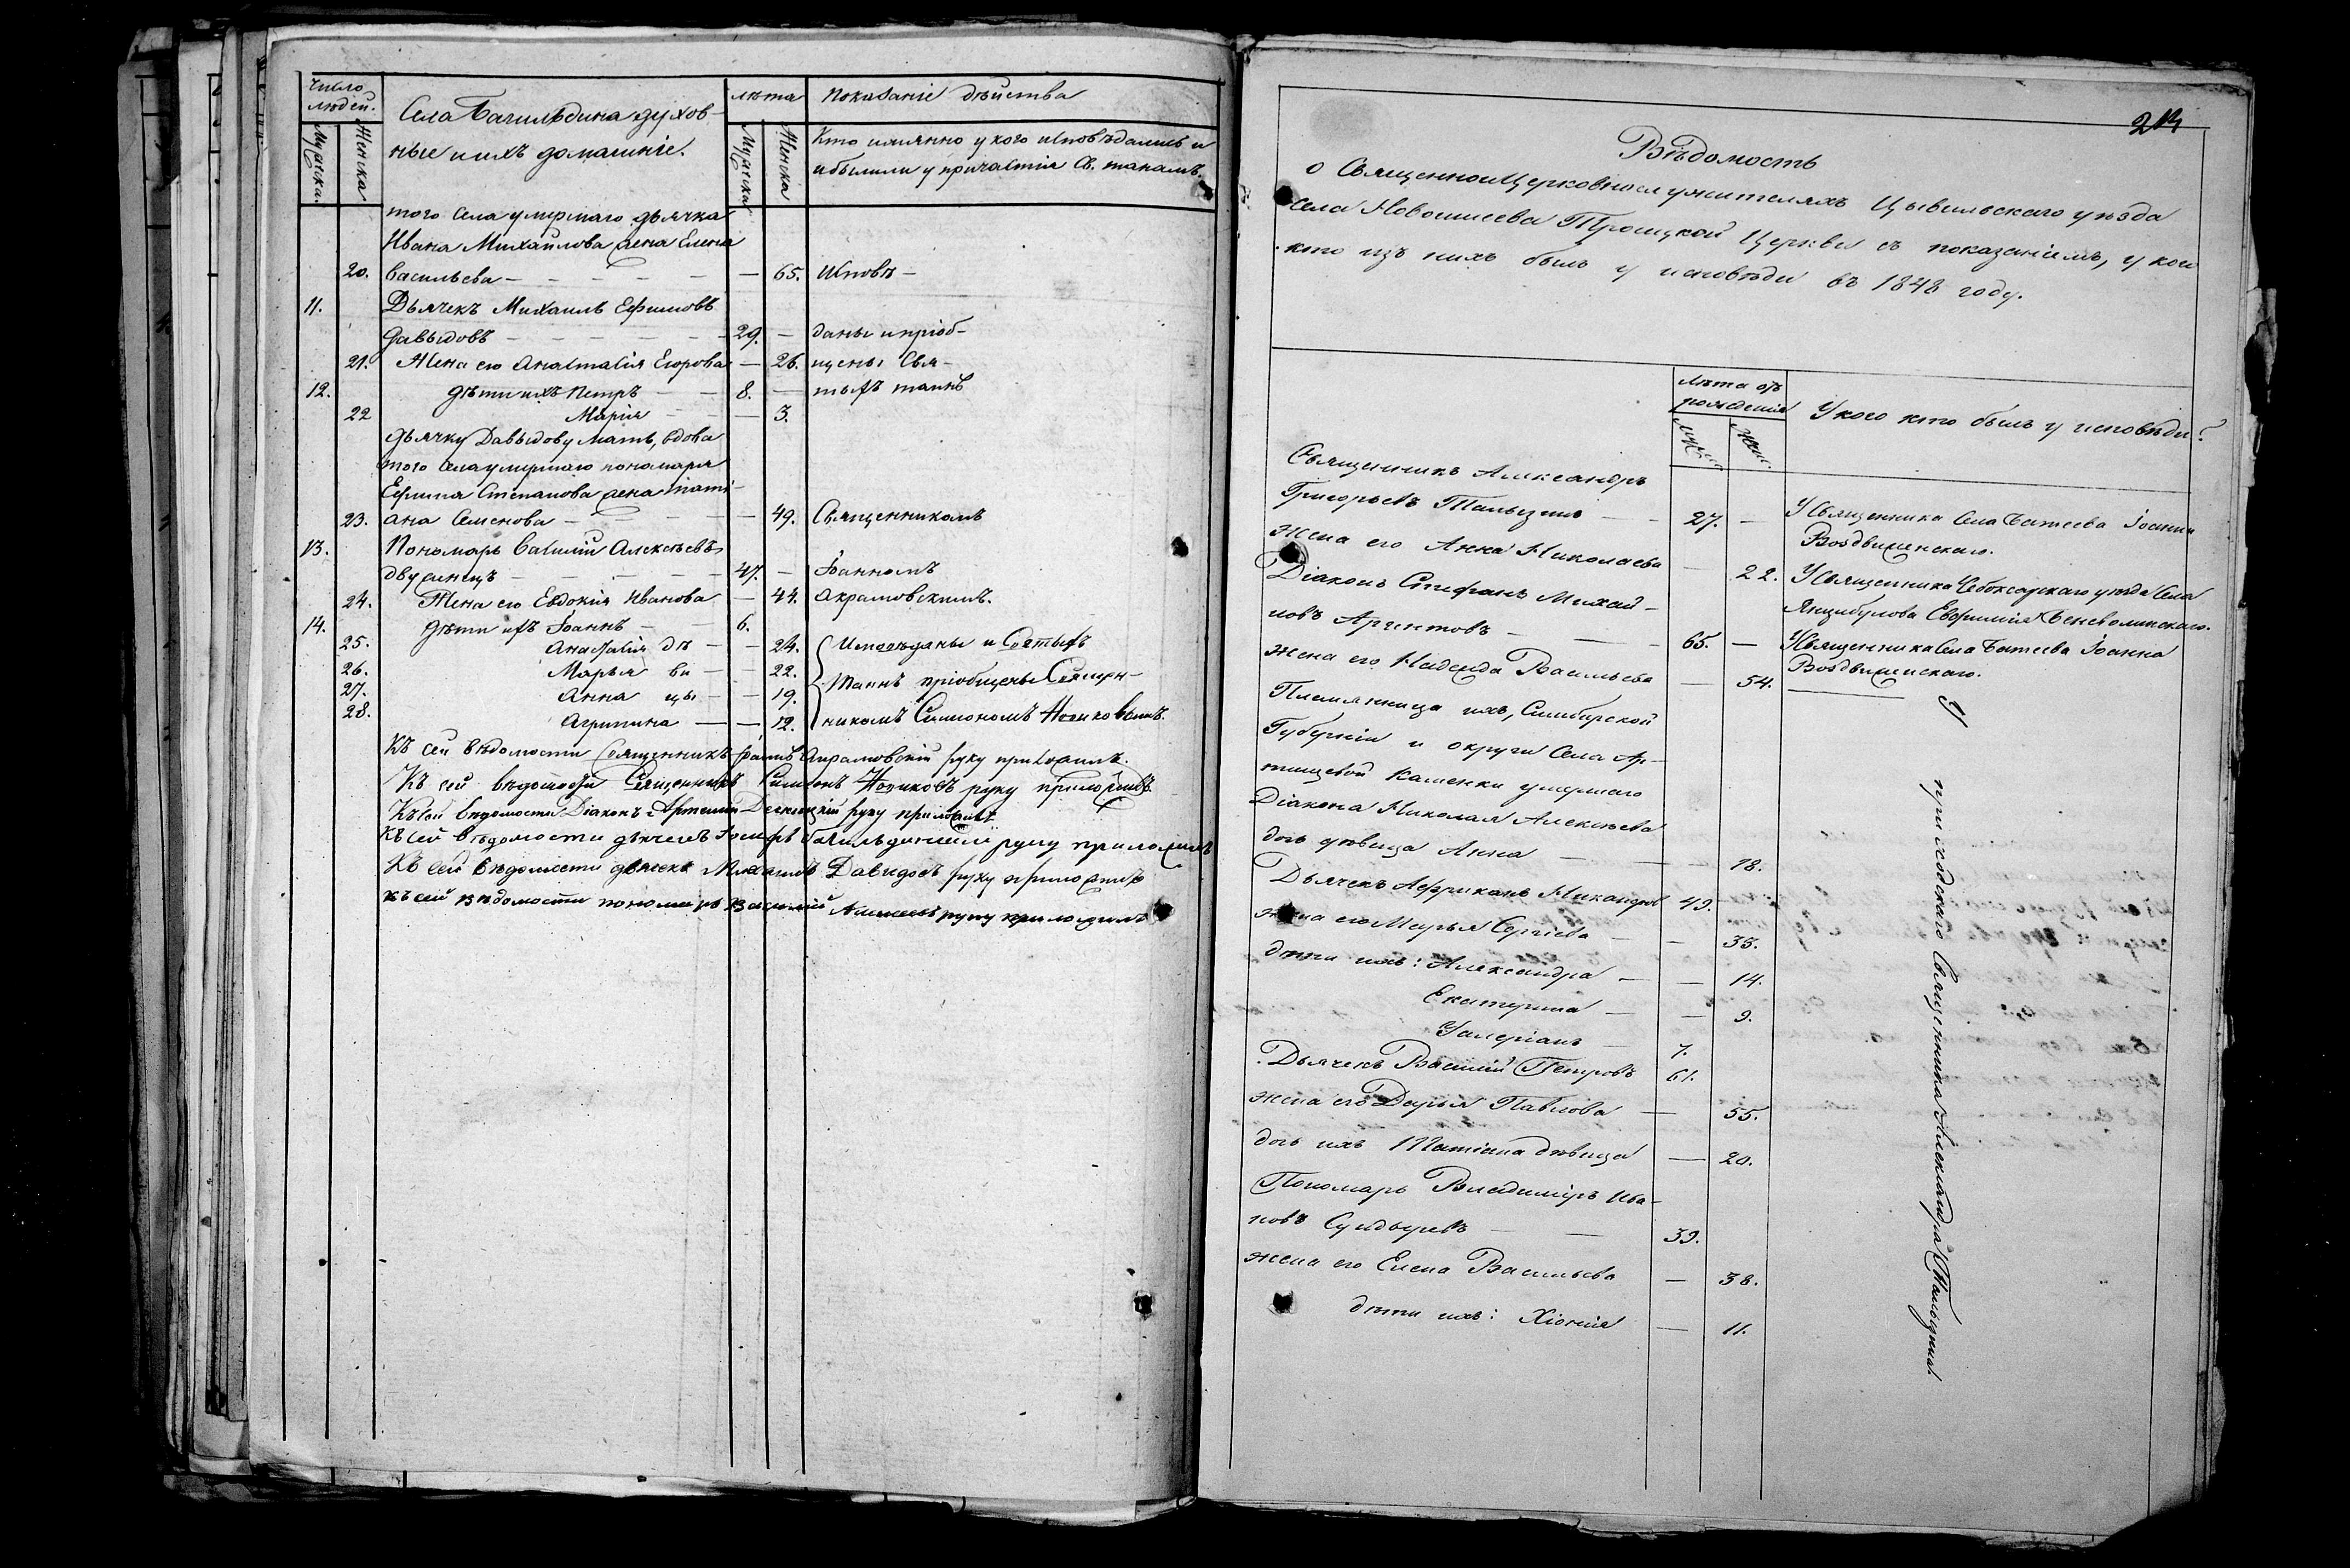 Число людей.
Мужска.
Женска
Села Бачильдина духов-
ные и ихъ домашніе.
лѣта
Мужска
Женска
показаніе дѣйства
Кто имянно у кого исповѣдались и
и были ли у причастія Св. таинъ.
того Села умершаго дьячка
Ивана Михайлова жена Елена
20. Васильева — — 65. Исповѣ-
11. Дьячекъ Михаилъ Ефимовъ
Давыдовъ — 29. — даны и пріоб-
21. Жена его Анастасія Егорова — 26. щены Свя-
12. дѣти ихъ Петръ — 8. — тыхъ таинъ
22 Марія — — 3.
дьячку Давыдову мать, вдова
того Села умершаго пономаря
Ефима Степанова жена Тати-
23. ана Семенова — — 49. Священникомъ
13. Пономарь Василій Алексѣевъ
47. — Іоанномъ
24. Жена его Евдокія Иванова — 44. Акрамовскимъ.
14. дѣти ихъ Іоаннъ — 6.
25. Анастасія дѣ — — 24. Исповѣданы и Святыхъ
26. Марья ви — 22. Таинъ пріобщены Священ-
27. Анна цы — — 19.
28. Агрипина — — 12. никомъ Симеономъ Новиковымъ.
Къ сей вѣдомости Священникъ Іоаннъ Акрамовскій руку приложилъ.
Къ сей вѣдомости Священникъ Симеонъ Новиковъ руку приложилъ
Къ сей вѣдомости Діаконъ Артемій руку приложилъ
Къ сей вѣдомости дьячекъ Іосифъ Бачильдинскій руку приложилъ
Къ сей вѣдомости дьячекъ Михаилъ Давидовъ руку приложилъ
къ сей вѣдомости пономарь Василій Алексеевъ руку приложилъ
Вѣдомость
о Священноцерковнослужителяхъ Цывильскаго уѣзда
Села Новоишеева Троицкой Церкви съ показаніемъ, у кого
кто изъ нихъ былъ у исповѣди въ 1848 году.
лѣта отъ рожденія
муж.
жен.
У кого кто былъ у исповѣди?
Священникъ Александръ
Григорьевъ Тальезинъ — 27. — У Священника Села Батеева Іоанна
Воздвиженскаго.
Жена его Анна Николаева — 22. У Священника Чебоксарскаго уѣзда Села
Янцибулова Евфимія Беневолинскаго.
Діаконъ Стефанъ Михай-
ловъ Аргентовъ — 65. — У Священника Села Батеева Іоанна
Воздвиженскаго.
жена его Надежда Васильева — 54.
Племянница ихъ, Симбирской
Губерніи и округи Села Ар-
тищевой Каменки умершаго
Діакона Николая Алексѣева
дочь дѣвица Анна — — 18.
Дьячекъ Африканъ Никандровъ 49.
жена его Марья Сергіева — — 35.
дѣти ихъ: Александра — — 14.
Екатерина — — 9.
Уалеріанъ — 7.
Дьячекъ Василій Петровъ 61.
жена его Дарья Павлова — 55.
дочь ихъ Татіана дѣвица — 20.
Пономарь Владиміръ Ива-
новъ Сундыревъ — — 39.
жена его Елена Васильева — 38.
дѣти ихъ: Хіонія — 11.
У приходскаго Священника Александра Тальезина